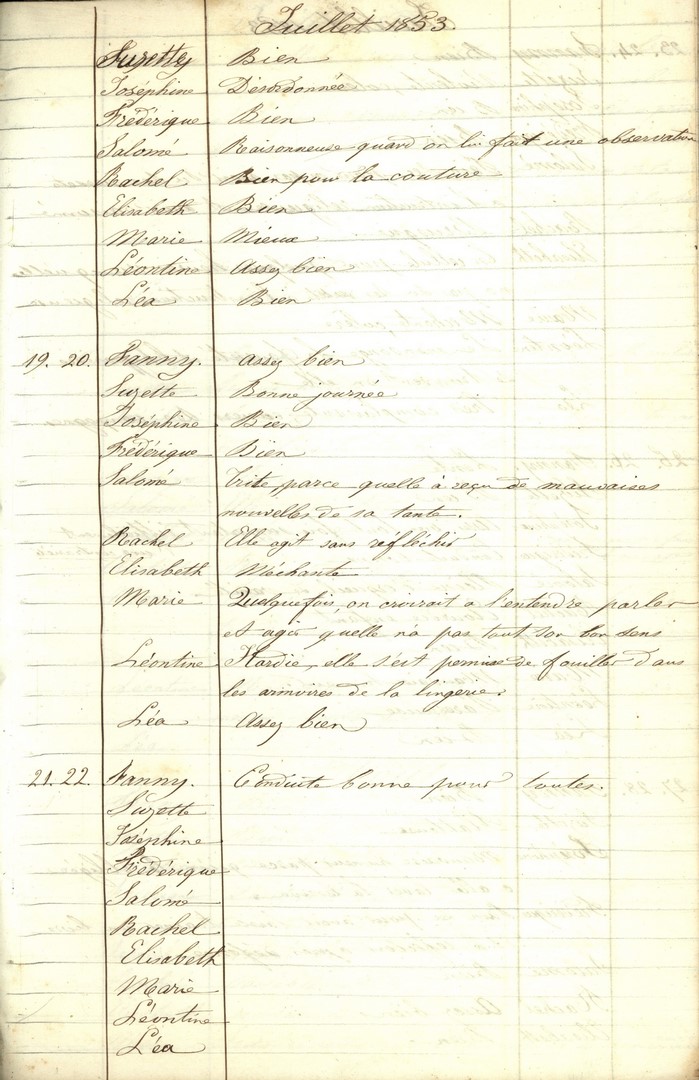 Juillet 1853.
Suzette Bien
Joséphine Désordonnée
Frédérique Bien
Salomé Raisonneuse quand on lui fait une observation
Rachel Bien pour la couture
Elisabeth Bien
Marie Mieux
Léontine Assez bien
Léa Bien
19. 20. Fanny. Assez bien
Suzette Bonne journée
Joséphine Bien
Frédérique Bien
Salomé Triste, parce quelle à reçu de mauvaises
nouvelles de sa tante.
Rachel Elle agit sans réfléchir
Elisabeth Méchante
Marie Quelquefois, on croirait a l'entendre parler
et agir quelle n'a pas tout son bon sens
Léontine Hardie, elle s'est permise de fouiller dans
les armoires de la lingerie.
Léa Assez bien
21. 22. Fanny. Conduite bonne pour toutes.
Suzette
Joséphine
Frédérique
Salomé
Rachel
Elisabeth
Marie
Léontine
Léa